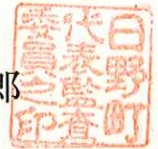 郎
日野町
代表監査
委員之印